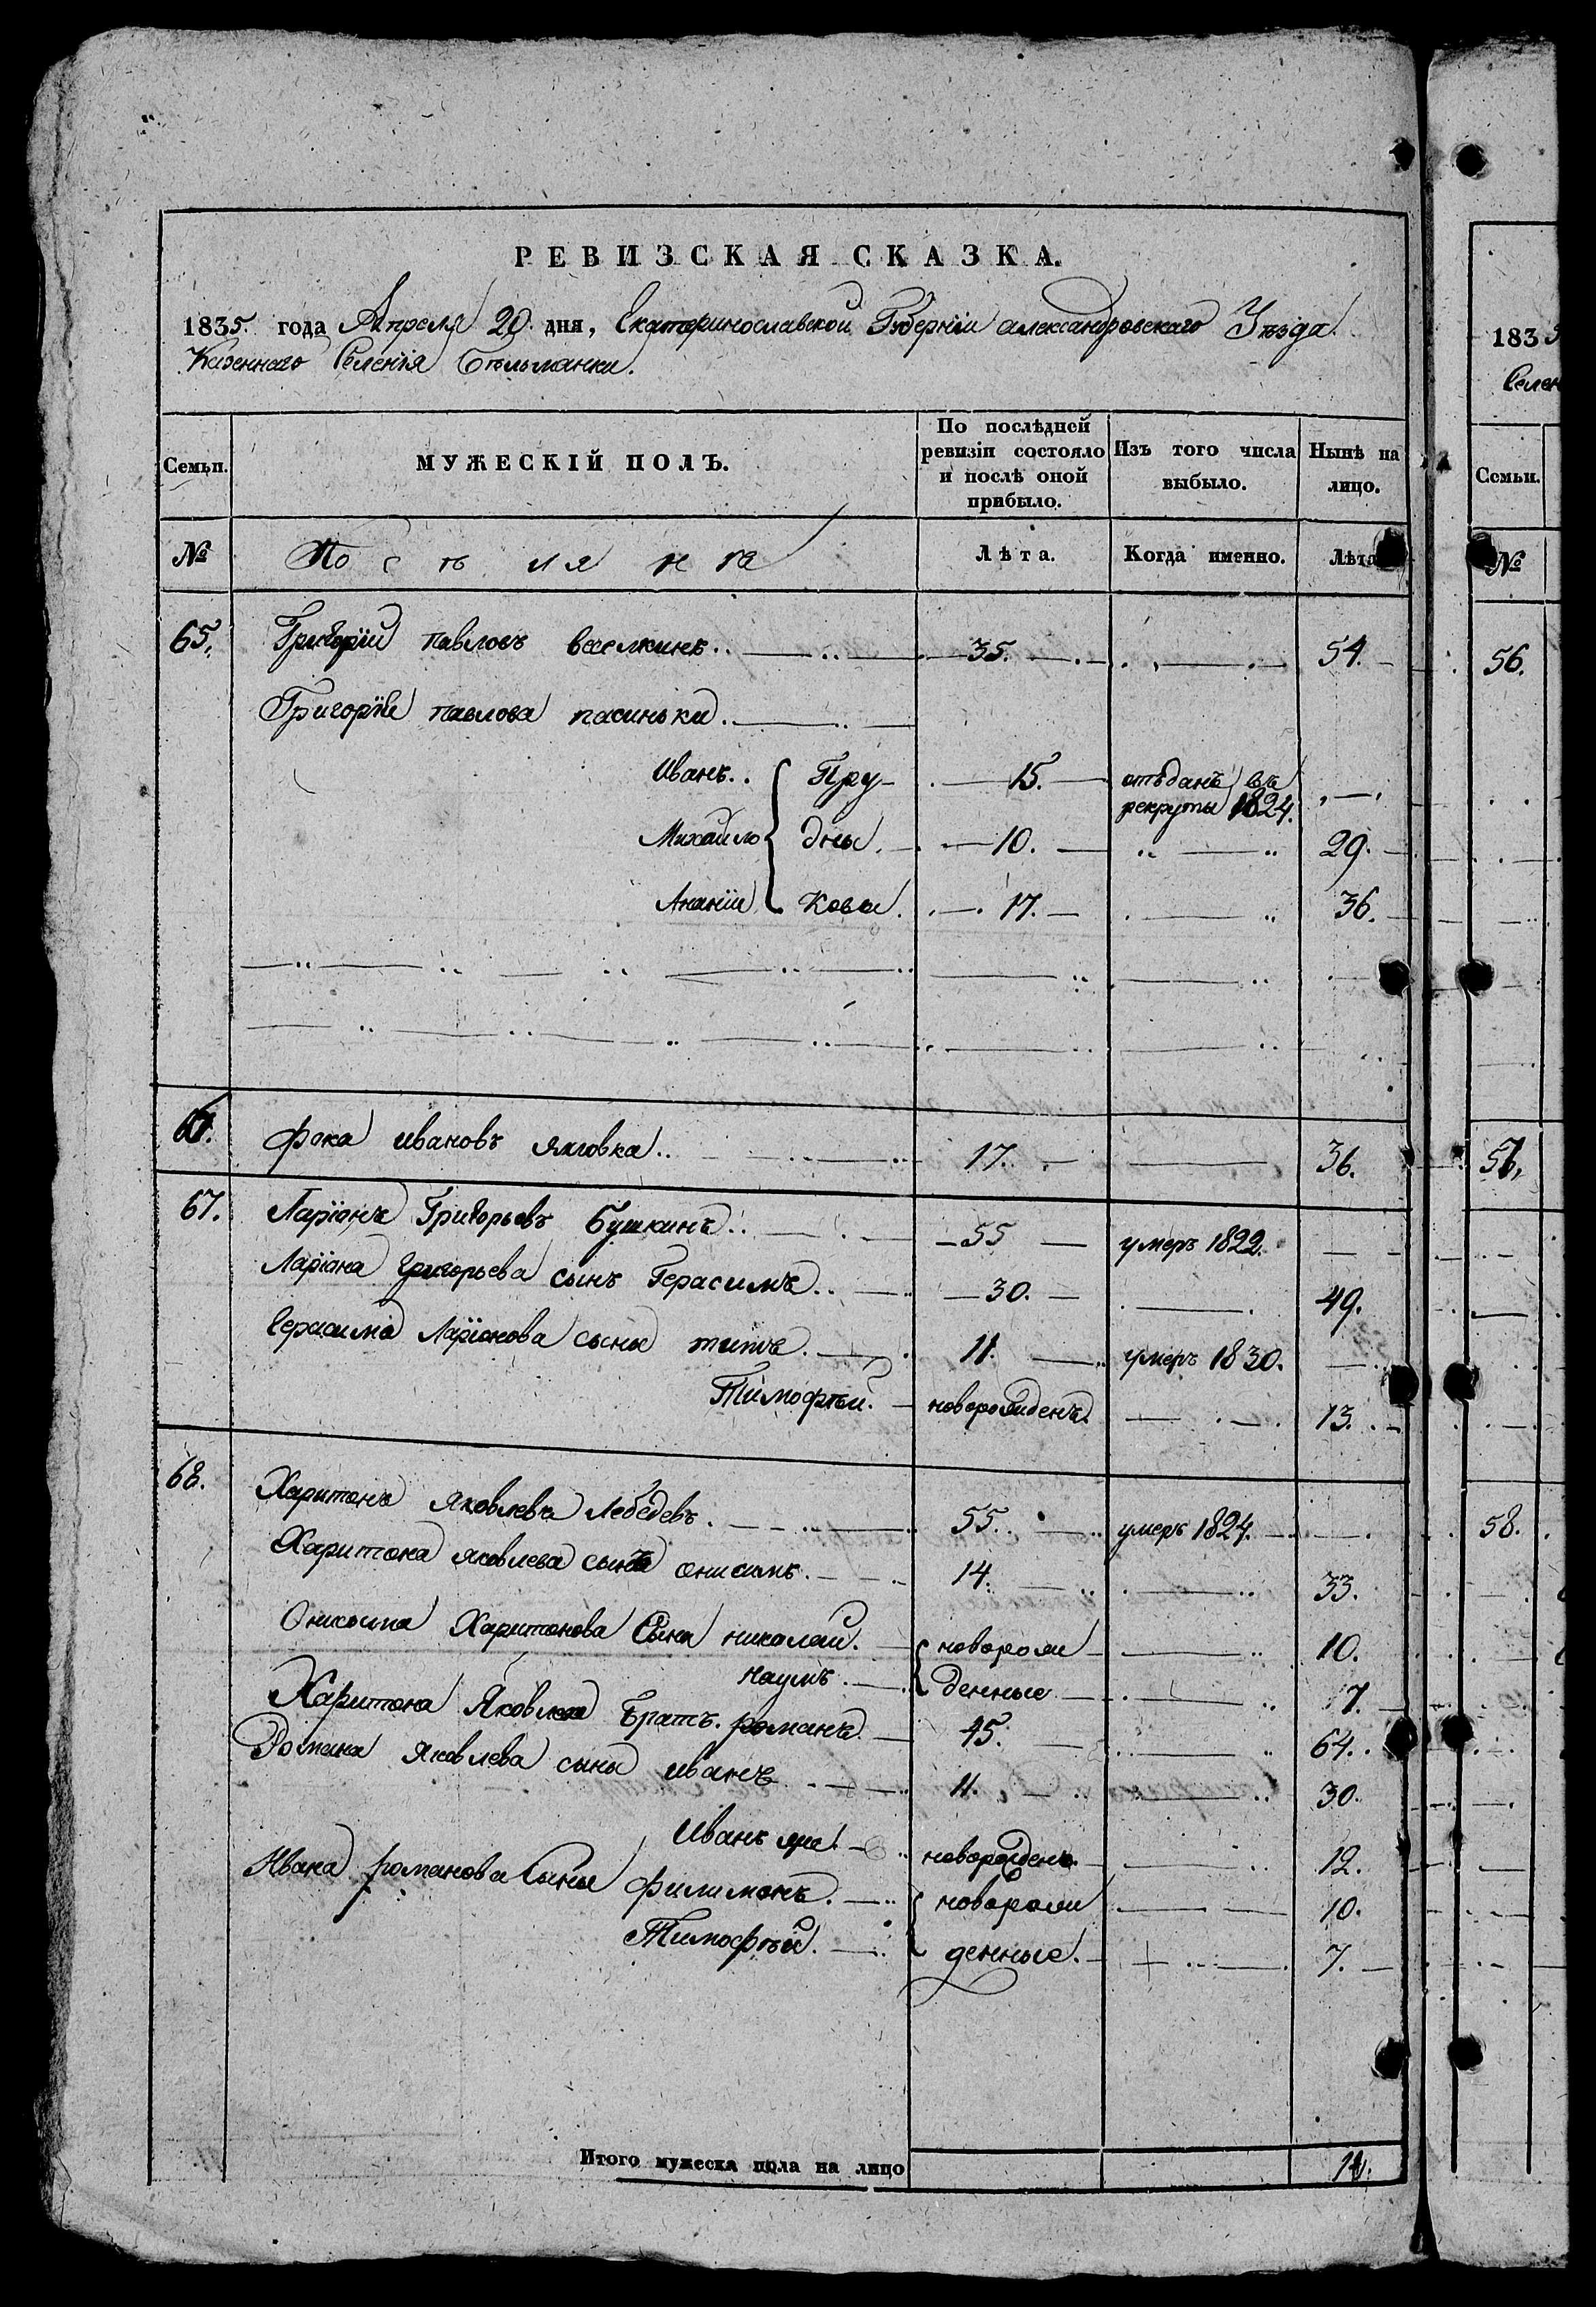 РЕВИЗСКАЯ СКАЗКА.
1835. года Апреля 20. дня, Екатеринославской Губерніи александровскаго Уѣзда
Казеннаго Селенія Бѣльманки.
Семьи. МУЖЕСКІЙ ПОЛЪ. По послѣдней ревизіи состояло и послѣ оной прибыло. Изъ того числа выбыло. Ныиѣ на лицо.
№ Лѣта. Когда именно. Лѣта
65. Григорій павловъ 35. 54.
Григорія павлова пасинъки.
Иванъ.. Пру- 15. отъданъ въ рекруты 1824.
Михайло дны 10. 29.
Ананіи Кова. 17. 36.
фока ивановъ 17. 36.
67. Ларіонъ Григорьевъ Бушкинъ.. 55 умеръ 1822.
Ларіона Григорьева сынъ Герасимъ.. 30. 49.
Герасима Ларіонова сыны титъ. 11. умеръ 1830.
Тимофѣй. новорожденъ. 13.
68. Харитонъ яковлевъ Лебедевъ. 55. умеръ 1824.
Харитона яковлева сынъ онисимъ. 14. 33.
Харитонова Сыны николай. новорож 10.
наумъ. денные 7.
Харитона Яковлева братъ. романъ. 45. 64.
Романа яковлева сыны иванъ 11. 30.
Иванъ новорожденъ 12.
Ивана романова Сыны филимонъ. новорож 10.
Тимофѣй. денные. 7.
Итого мужеска пола на лицо
183
Селен
Семьи.
№
56.
57.
58.